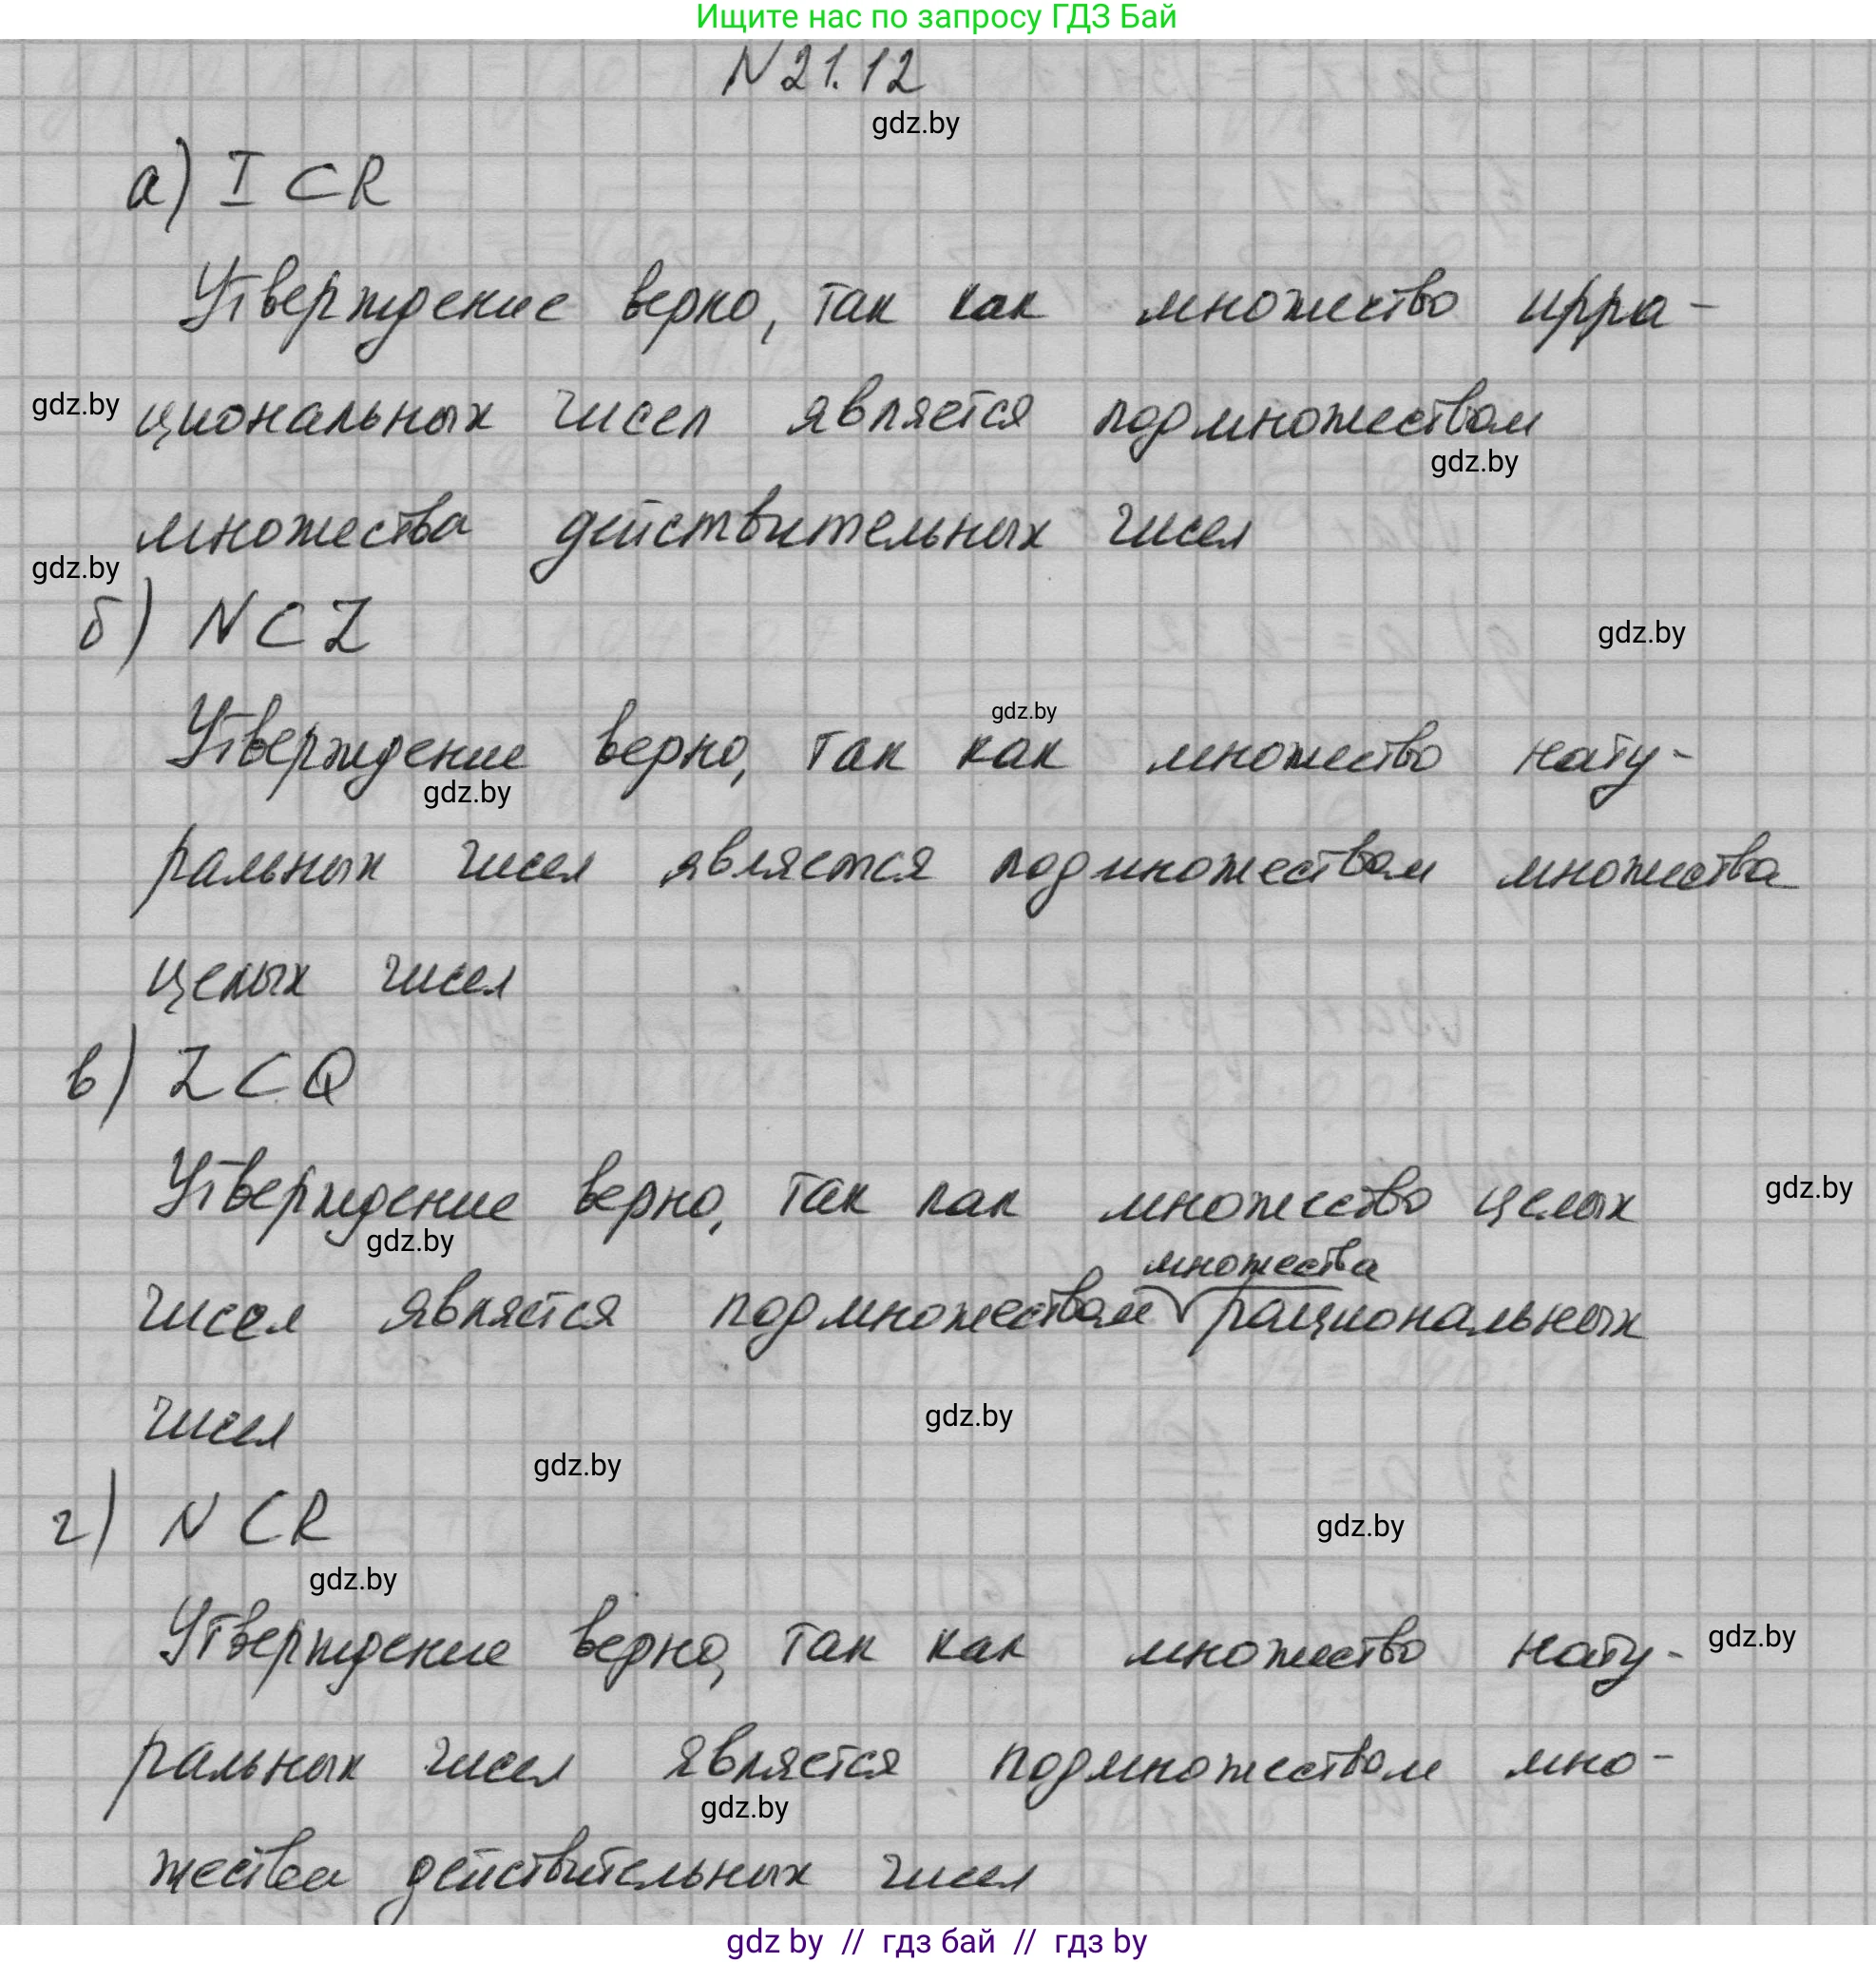 Ищите нас по запросу ГДЗ Бай
N 21.12
gdz.by
а) I ⊂ R
Утверждение верно, так как множество ирра-
gdz.by циональных чисел является подмножеством
gdz.by
множества действительных чисел
gdz.by
б) N ⊂ Z
gdz.by
gdz.by
Утверждение верно, так как множество нату-
gdz.by
ральных чисел является подмножеством множества
целых чисел
в) Z ⊂ Q
Утверждение верно, так как множество целых
gdz.by
gdz.by
множества
чисел является подмножеством рациональных
чисел
gdz.by
gdz.by
г) N ⊂ R
gdz.by
gdz.by
Утверждение верно, так как множество нату-
gdz.by
ральных чисел является подмножеством мно-
gdz.by
жества действительных чисел
gdz by // гдз бай // гдз by